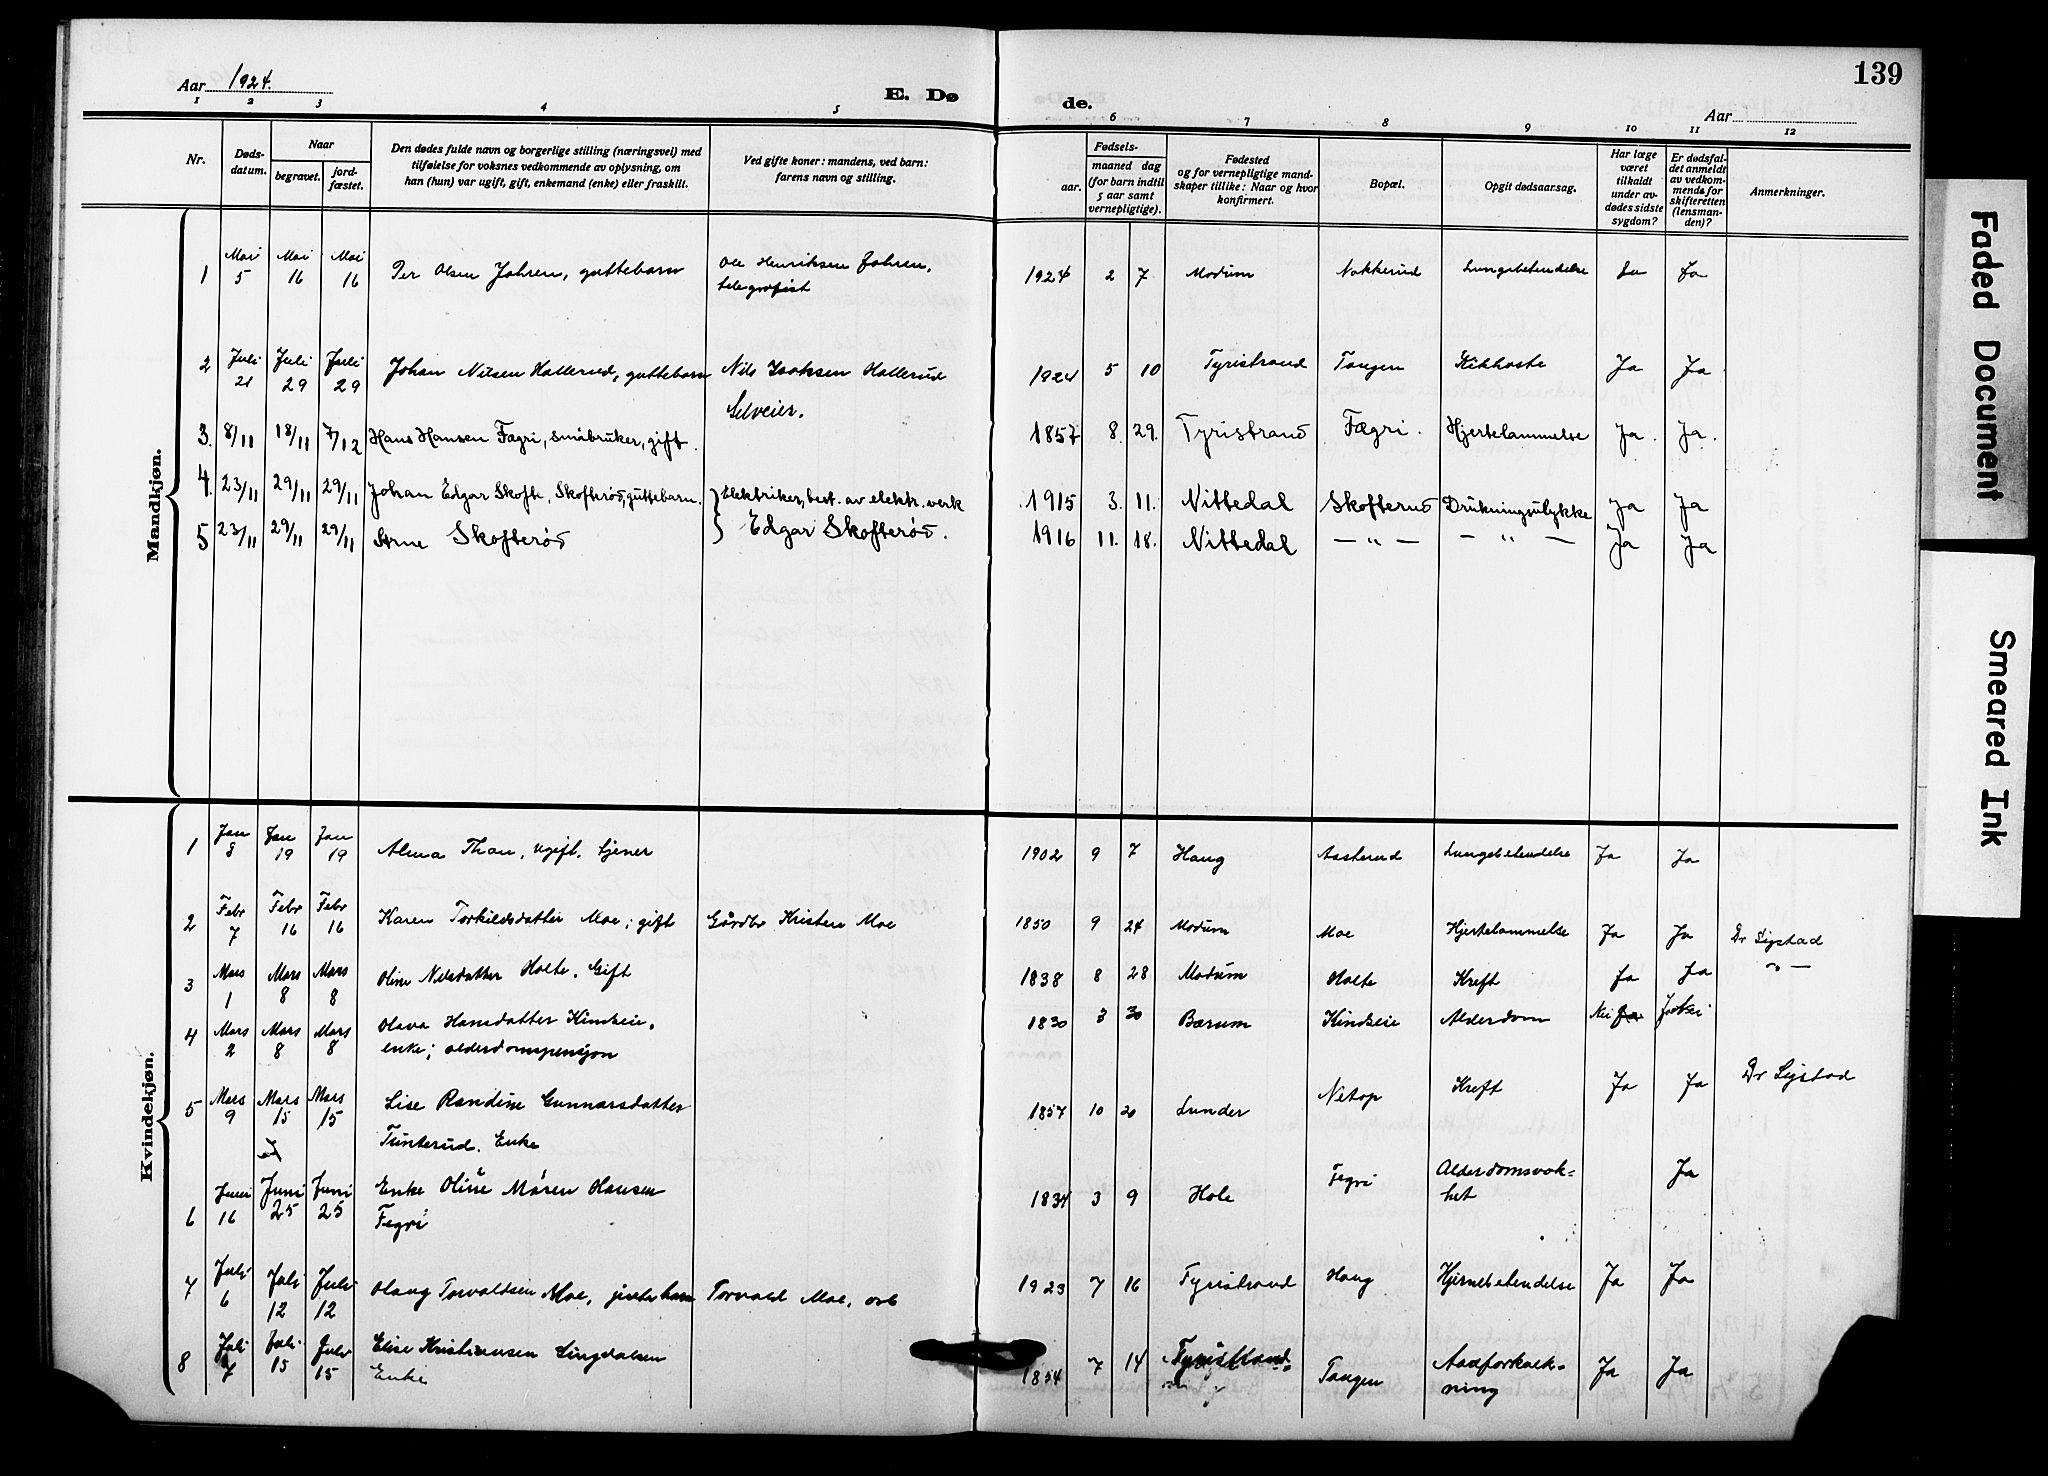 139
Aar 1924.
E. Dø
de.
Aar
1 2 3 4 5 6 7 8 9 10 11 12
Nr.
Døds-
datum.
Naar
begravet.
jord-
fæstet.
Den dødes fulde navn og borgerlige stilling (næringsvei) med
tilføielse for voksnes vedkommende av oplysning, om
han (hun) var ugift, gift, enkemand (enke) eller fraskilt.
Ved gifte koner: mandens, ved barn:
farens navn og stilling.
Fødsels-
aar.
maaned dag
(for barn indtil
5 aar samt
vernepligtige).
Fødested
og for vernepligtige mand-
skaper tillike: Naar og hvor
konfirmert.
Bopæl.
Opgit dødsaarsag.
Har læge
været
tilkaldt
under av-
dødes sidste
sygdom?
Er dødsfal-
det anmeldt
av vedkom-
mende for
skifteretten
(lensman-
den)?
Anmerkninger.
Mandkjøn.
1 Mai 5 Mai 16 Mai 16 Per Olsen Jahren, guttebarn Ole Henriksen Jahren, 1924 2 7 Modum Nakkerud Lungebetendelse Ja Ja
telegrafist
2 Juli 21 Juli 29 Juli 29 Johan Nilsen Hallerud, guttebarn Nils Isaksen Hallerud 1924 5 10 Tyristrand Tangen Kikhoste Ja Ja
Selveier.
3. 8/11 18/11 7/12 Hans Hansen Fægri, småbruker, gift. 1857 8. 29. Tyristrand Fægri. Hjertelammelse Ja. Ja.
4. 23/11 29/11 29/11 Johan Edgar Skofte, Skofterød, guttebarn. Elektriker, best. av elektr. verk 1915 3. 11. Nittedal Skofterud Drukningsulykke Ja Ja
5 23/11 29/11 29/11 Arne Skofterød Edgar Skofterød. 1916 11. 18. Nittedal — " — — " — Ja Ja
Kvindekjøn.
1 Jan 8 Jan 19 Jan 19 Alma Thon, ugift. tjener 1902 9 7 Haug Aasterud Lungebetendelse Ja Ja
2 Febr 7 Febr 16 Febr 16 Karen Torkildsdatter Moe; gift Gårdbr Kristen Moe 1850 9 24 Modum Moe Hjertelammelse Ja Ja Dr Sigstad
3 Mars 1 Mars 8 Mars 8 Oline Nilsdatter Holte. Gift 1838 8 28 Modum Holte Kreft Ja Ja — " —
4 Mars 2 Mars 8 Mars 8 Olava Hansdatter Kindseie, 1830 3 30 Bærum Kindseie Alderdom Nei
enke; alderdomspensjon
5 Mars 9 Mars 15 Mars 15 Lise Randine Gunnarsdatter 1857 10 20 Lunder Netop Kreft Ja Ja Dr Sigstad
Tunterud. Enke
6 Juni 16 Juni 25 Juni 25 Enke Oline Maren Hansen 1834 3 9 Hole Fegri Alderdomsvak- Ja
Fegri het
7 Juli 6 Juli 12 Juli 12 Olaug Torvaldsen Moe, pikebarn Torvald Moe, arb 1923 7 16 Tyristrand Haug Hjernebetendelse Ja Ja
8 Juli 7 Juli 15 Juli 15 Elise Kristiansen Lingdalsen 1854 7 14 Tyristrand Tangen Aareforkalk- Ja Ja
Enke ning
Faded Document
Smeared Ink